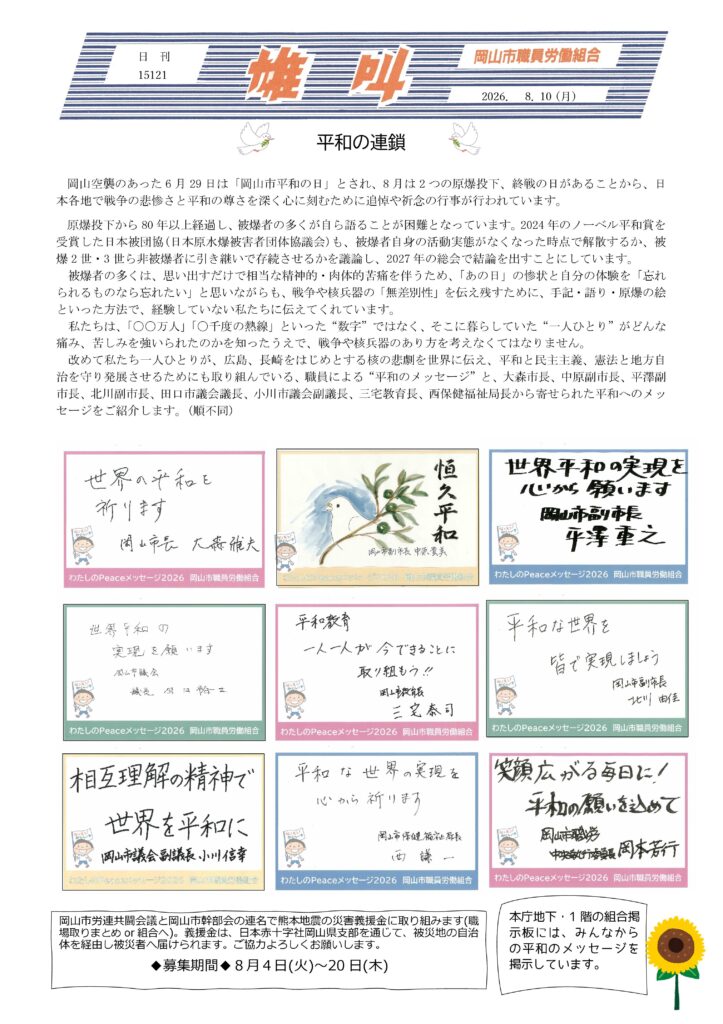 日 刊
15121
雄叫
岡山市職員労働組合
2026. 8. 10 (月)
平和の連鎖
岡山空襲のあった6月29日は「岡山市平和の日」とされ、8月は2つの原爆投下、終戦の日があることから、日
本各地で戦争の悲惨さと平和の尊さを深く心に刻むために追悼や祈念の行事が行われています。
原爆投下から80年以上経過し、被爆者の多くが自ら語ることが困難となっています。2024年のノーベル平和賞を
受賞した日本被団協(日本原水爆被害者団体協議会)も、被爆者自身の活動実態がなくなった時点で解散するか、被
爆2世・3世ら非被爆者に引き継いで存続させるかを議論し、2027年の総会で結論を出すことにしています。
被爆者の多くは、思い出すだけで相当な精神的・肉体的苦痛を伴うため、「あの日」の惨状と自分の体験を「忘れ
られるものなら忘れたい」と思いながらも、戦争や核兵器の「無差別性」を伝え残すために、手記・語り・原爆の絵
といった方法で、経験していない私たちに伝えてくれています。
私たちは、「〇〇万人」「〇千度の熱線」といった“数字”ではなく、そこに暮らしていた“一人ひとり”がどんな
痛み、苦しみを強いられたのかを知ったうえで、戦争や核兵器のあり方を考えなくてはなりません。
改めて私たち一人ひとりが、広島、長崎をはじめとする核の悲劇を世界に伝え、平和と民主主義、憲法と地方自
治を守り発展させるためにも取り組んでいる、職員による“平和のメッセージ”と、大森市長、中原副市長、平澤副
市長、北川副市長、田口市議会議長、小川市議会副議長、三宅教育長、西保健福祉局長から寄せられた平和へのメッ
セージをご紹介します。(順不同)
世界の平和を
祈ります
岡山市長 大森雅夫
わたしのPeaceメッセージ2026 岡山市職員労働組合
恒久平和
岡山市副市長 中原貴美
わたしのPeaceメッセージ2026 岡山市職員労働組合
世界平和の実現を
心から願います
岡山市副市長
平澤重之
わたしのPeaceメッセージ2026 岡山市職員労働組合
世界平和の
実現を願います
岡山市議会
議長 田口裕士
わたしのPeaceメッセージ2026 岡山市職員労働組合
平和教育
一人一人が今できることに
取り組もう!!
岡山市教育長
三宅泰司
わたしのPeaceメッセージ2026 岡山市職員労働組合
平和な世界を
皆で実現しましょう
岡山市副市長
北川由佳
わたしのPeaceメッセージ2026 岡山市職員労働組合
相互理解の精神で
世界を平和に
岡山市議会副議長 小川信幸
わたしのPeaceメッセージ2026 岡山市職員労働組合
平和な世界の実現を
心から祈ります
岡山市保健福祉局長
西謙一
わたしのPeaceメッセージ2026 岡山市職員労働組合
笑顔広がる毎日に!
平和の願いを込めて
岡山市職労
中央執行委員長 岡本芳行
わたしのPeaceメッセージ2026 岡山市職員労働組合
岡山市労連共闘会議と岡山市幹部会の連名で熊本地震の災害義援金に取り組みます(職
場取りまとめor組合へ)。義援金は、日本赤十字社岡山県支部を通じて、被災地の自治
体を経由し被災者へ届けられます。ご協力よろしくお願いします。
◆募集期間◆8月4日(火)～20日(木)
本庁地下・1階の組合掲
示板には、みんなから
の平和のメッセージを
掲示しています。